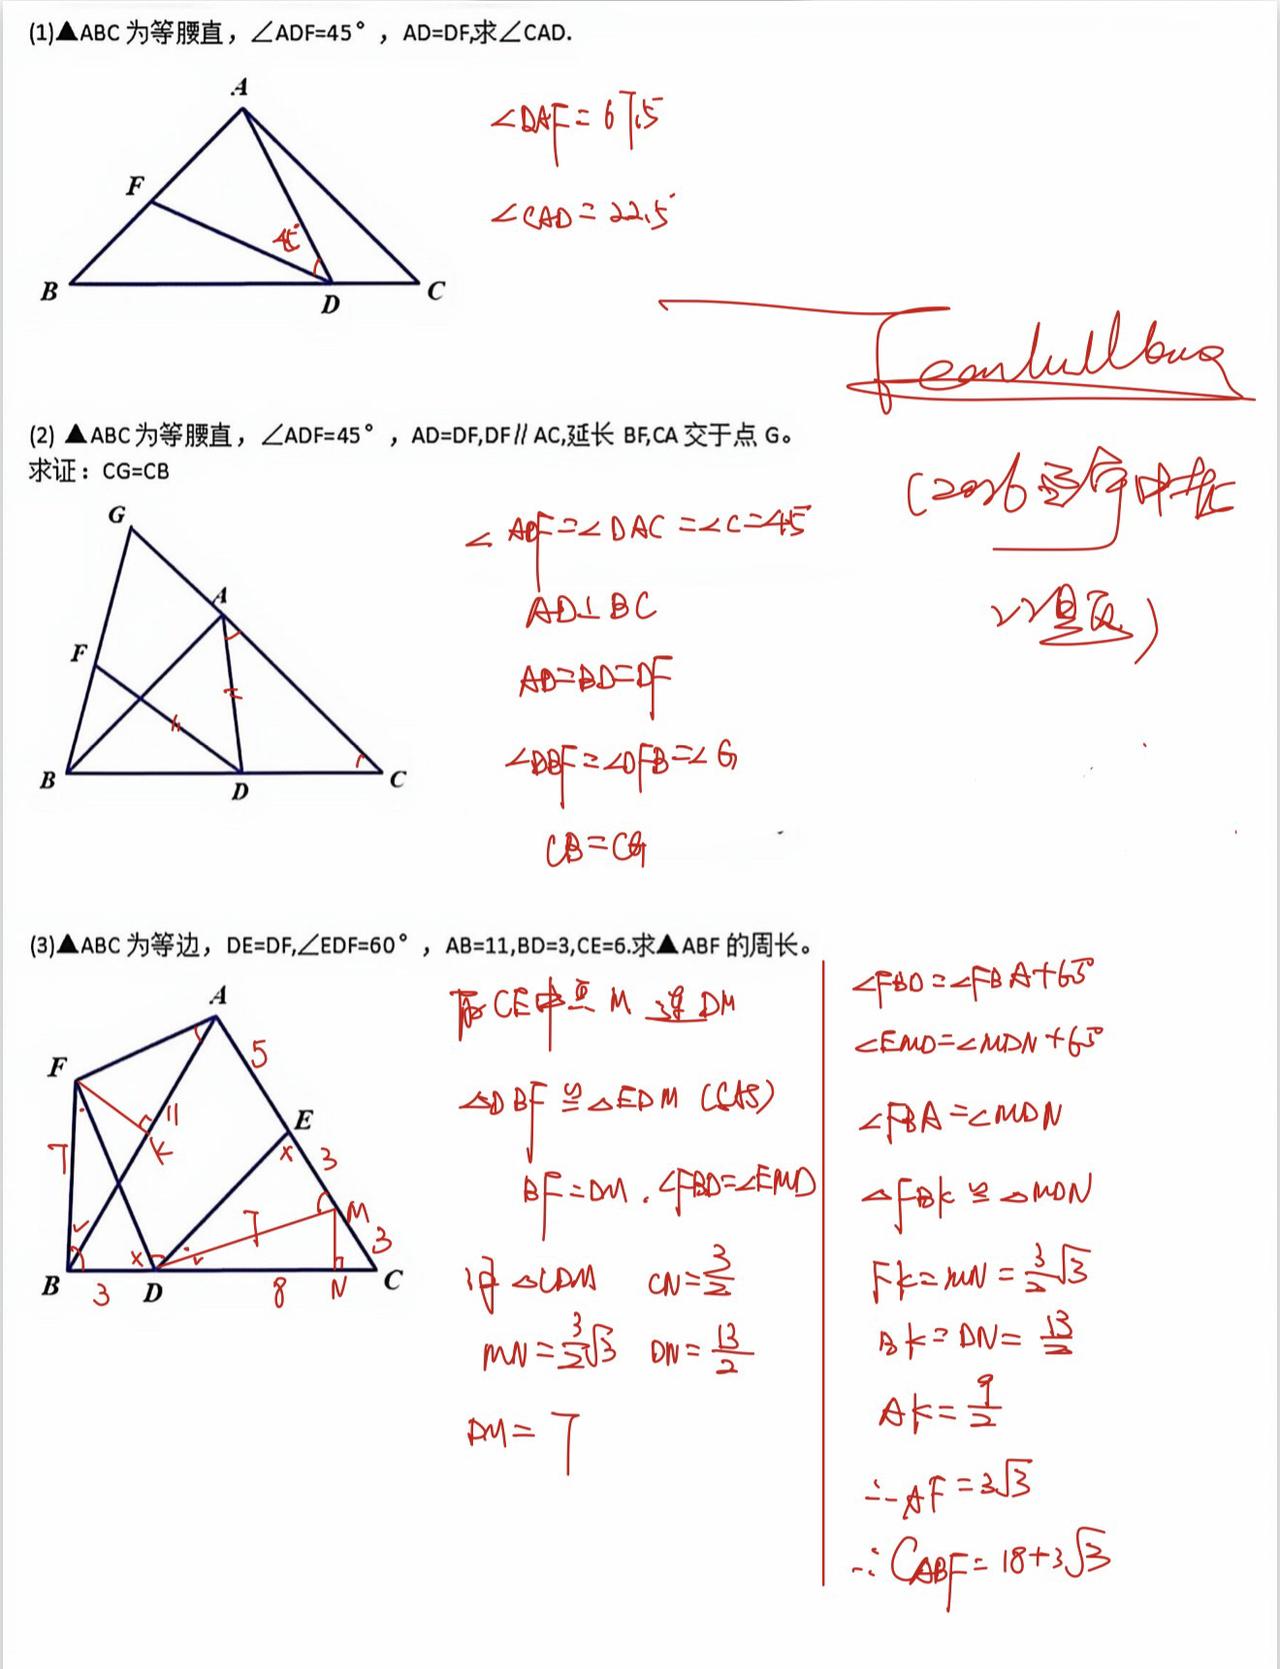 (1)▲ABC 为等腰直，∠ADF=45°，AD=DF,求∠CAD.
A
F
45°
B
D
C
∠DAF=67.5
∠CAD=22.5°
(2) ▲ABC 为等腰直，∠ADF=45°，AD=DF,DF∥AC,延长 BF,CA 交于点 G。
求证：CG=CB
G
A
F
B
D
C
∠ADF=∠DAC=∠C=45°
AD⊥BC
AD=BD=DF
∠DBF=∠DFB=∠G
CB=CG
(3)▲ABC 为等边，DE=DF,∠EDF=60°，AB=11,BD=3,CE=6.求▲ABF 的周长。
A
F
5
11
K
E
7
x
3
M
7
3
x
B
3
D
8
N
C
取CE中点 M 连DM
△DBF≌△EDM (SAS)
BF=DM . ∠FBD=∠EMD
△CDM CN=3/2
MN=3/2√3 DN=13/2
DM=7
∠FBD=∠FBA+60°
∠EMD=∠MDN+60°
∠FBA=∠MDN
△FBK≌△MDN
FK=MN=3/2√3
BK=DN=13/2
AK=9/2
∴AF=3√3
∴C ABF=18+3√3